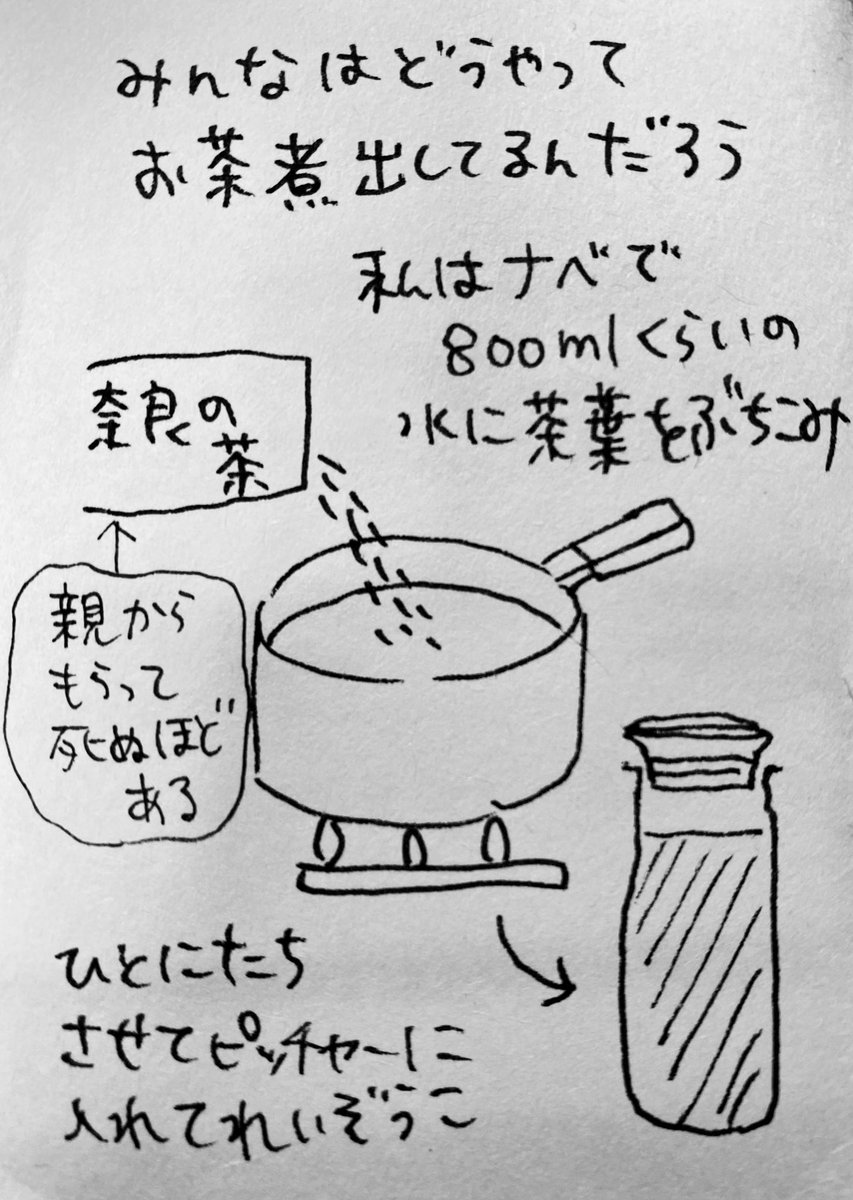 みんなはどうやって
お茶煮出してるんだろう
私はナベで
800mlくらいの
水に茶葉をぶちこみ
奈良の
茶
親から
もらって
死ぬほど
ある
ひとにたち
させてピッチャーに
入れてれいぞうこ